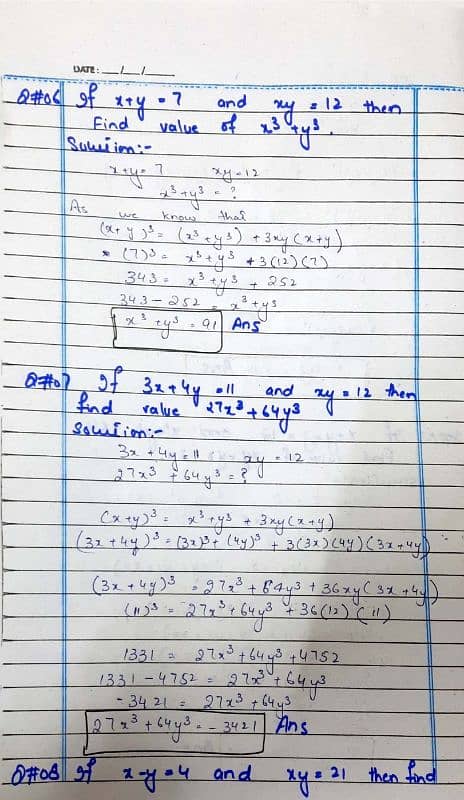 DATE: __/__/____
Q#06 If x+y = 7 and xy = 12 then
Find value of x³+y³.
Solution:-
x+y= 7 xy=12
x³+y³ = ?
As we know that
(x+y)³= (x³+y³) +3xy(x+y)
(7)³= x³+y³ +3(12)(7)
343= x³+y³ + 252
343-252 = x³+y³
x³+y³ = 91 Ans
Q#07 If 3x+4y =11 and xy = 12 then
find value 27x³+64y³
Solution:-
3x+4y=11 xy = 12
27x³ +64y³ = ?
(x+y)³ = x³+y³ + 3xy(x+y)
(3x+4y)³ = (3x)³+(4y)³ + 3(3x)(4y)(3x+4y)
(3x+4y)³ = 27x³+64y³+36xy(3x+4y)
(11)³ = 27x³+64y³ +36(12)(11)
1331 = 27x³+64y³ +4752
1331-4752 = 27x³+64y³
-3421 = 27x³+64y³
27x³+64y³ = -3421 Ans
Q#08 If x-y=4 and xy = 21 then find